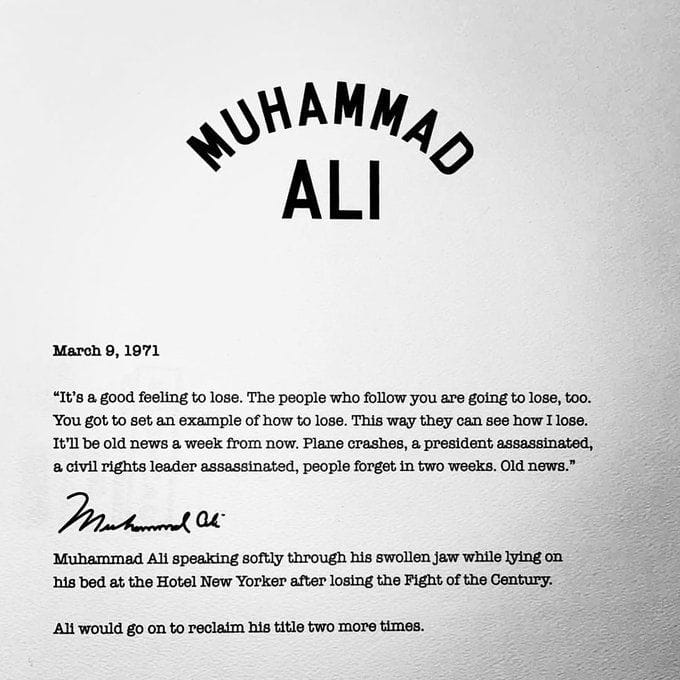 MUHAMMAD
ALI
March 9, 1971
“It’s a good feeling to lose. The people who follow you are going to lose, too.
You got to set an example of how to lose. This way they can see how I lose.
It’ll be old news a week from now. Plane crashes, a president assassinated,
a civil rights leader assassinated, people forget in two weeks. Old news.”
Muhammad Ali
Muhammad Ali speaking softly through his swollen jaw while lying on
his bed at the Hotel New Yorker after losing the Fight of the Century.
Ali would go on to reclaim his title two more times.